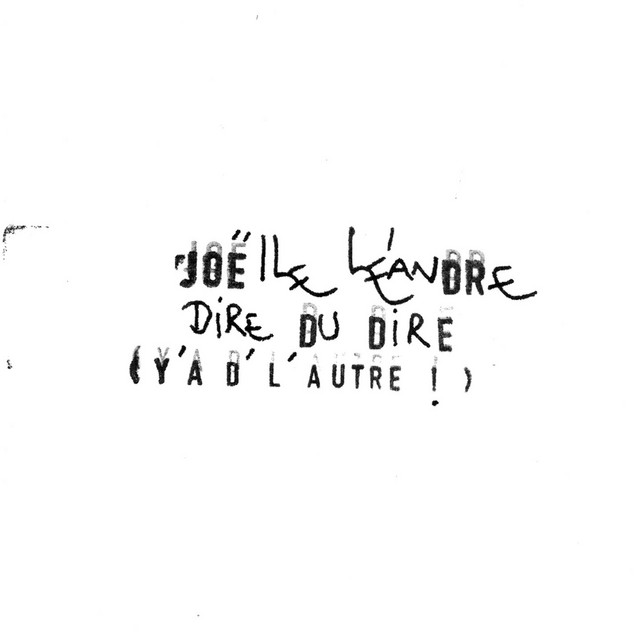 JOËLLE LÉANDRE
DIRE DU DIRE
(Y'A D'L'AUTRE !)